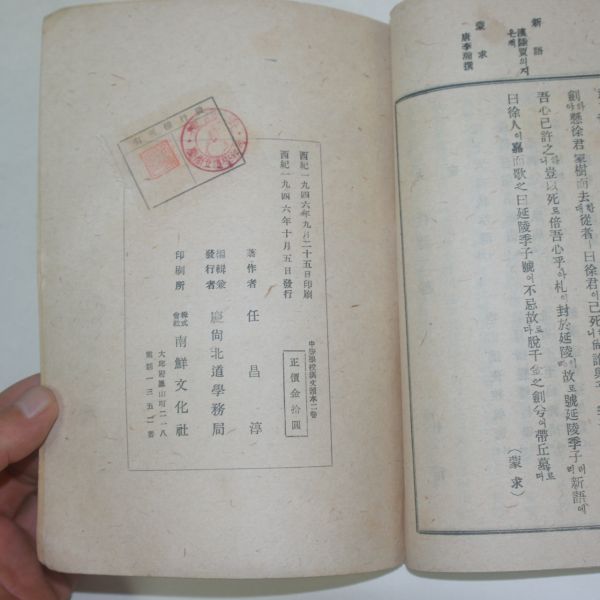 新語
漢陸賈의지은책
蒙求
唐李瀚撰
劍야懸徐君冢樹而去한대從者ㅣ曰徐君이已死
吾心已許之니豈以死로倍吾心乎아札이封於延陵이故로號延陵季子新語에
曰徐人이嘉而歌之曰延陵季子號여不忘故로다脫千金之劍兮여帶丘墓로
(蒙求)
中等學校漢文讀本二卷
正價金拾圓
西紀一九四六年九月二十五日印刷
西紀一九四六年十月五日發行
著作者 任昌淳
編輯兼發行者 慶尙北道學務局
印刷所 株式會社 南鮮文化社
大邱府鳳山町二一八
電話一三五二番